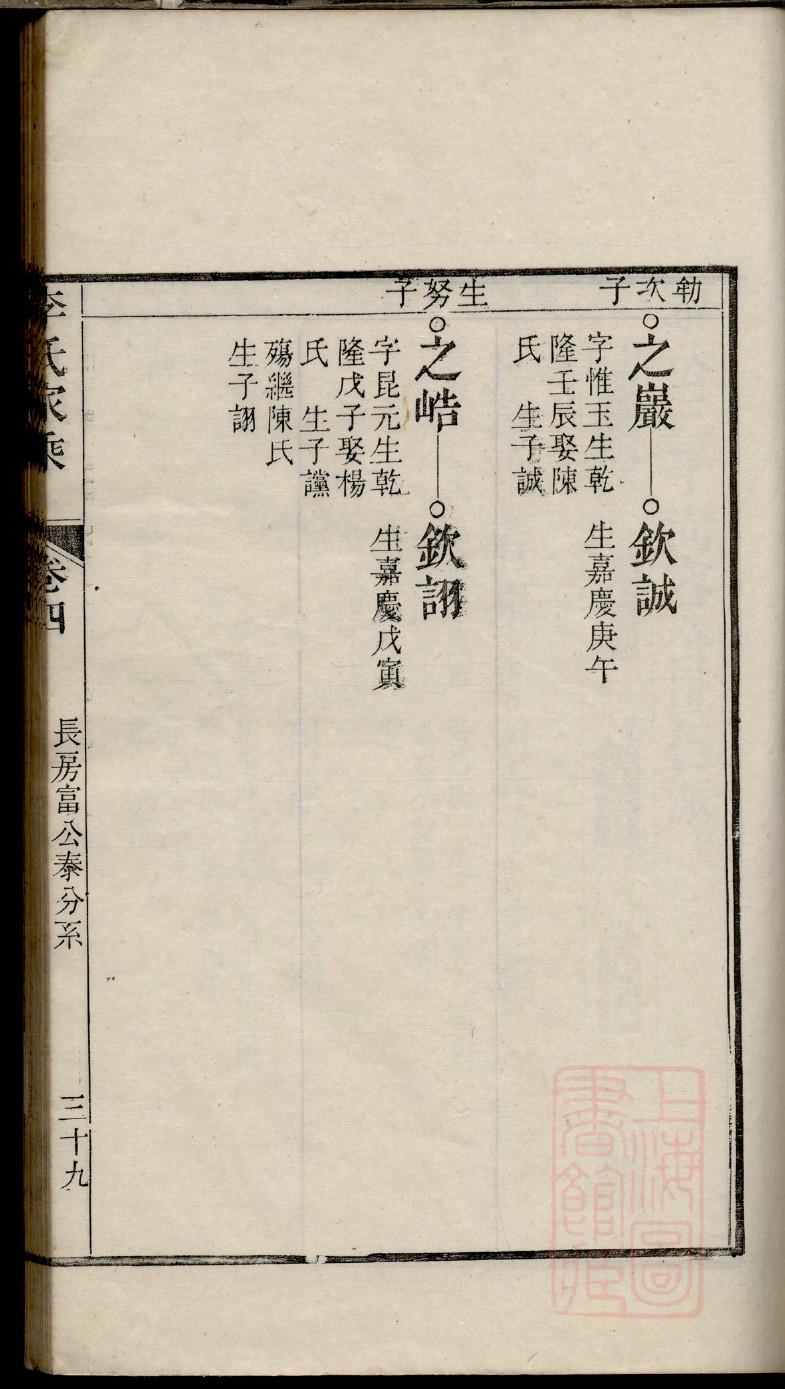 勅次子
之巖
字惟玉生乾
隆壬辰娶陳
氏 生子誠
欽誠
生嘉慶庚午
生努子
之峼
字昆元生乾
隆戊子娶楊
氏 生子讜
殤繼陳氏
生子詡
欽詡
生嘉慶戊寅
李氏家乘
卷四
長房富公泰分系
三十九
上海圖
書館藏